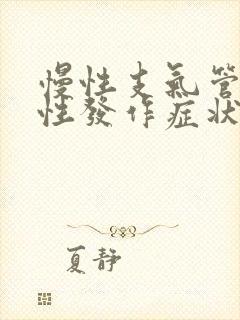 慢性支氣管
性發作症狀
夏靜